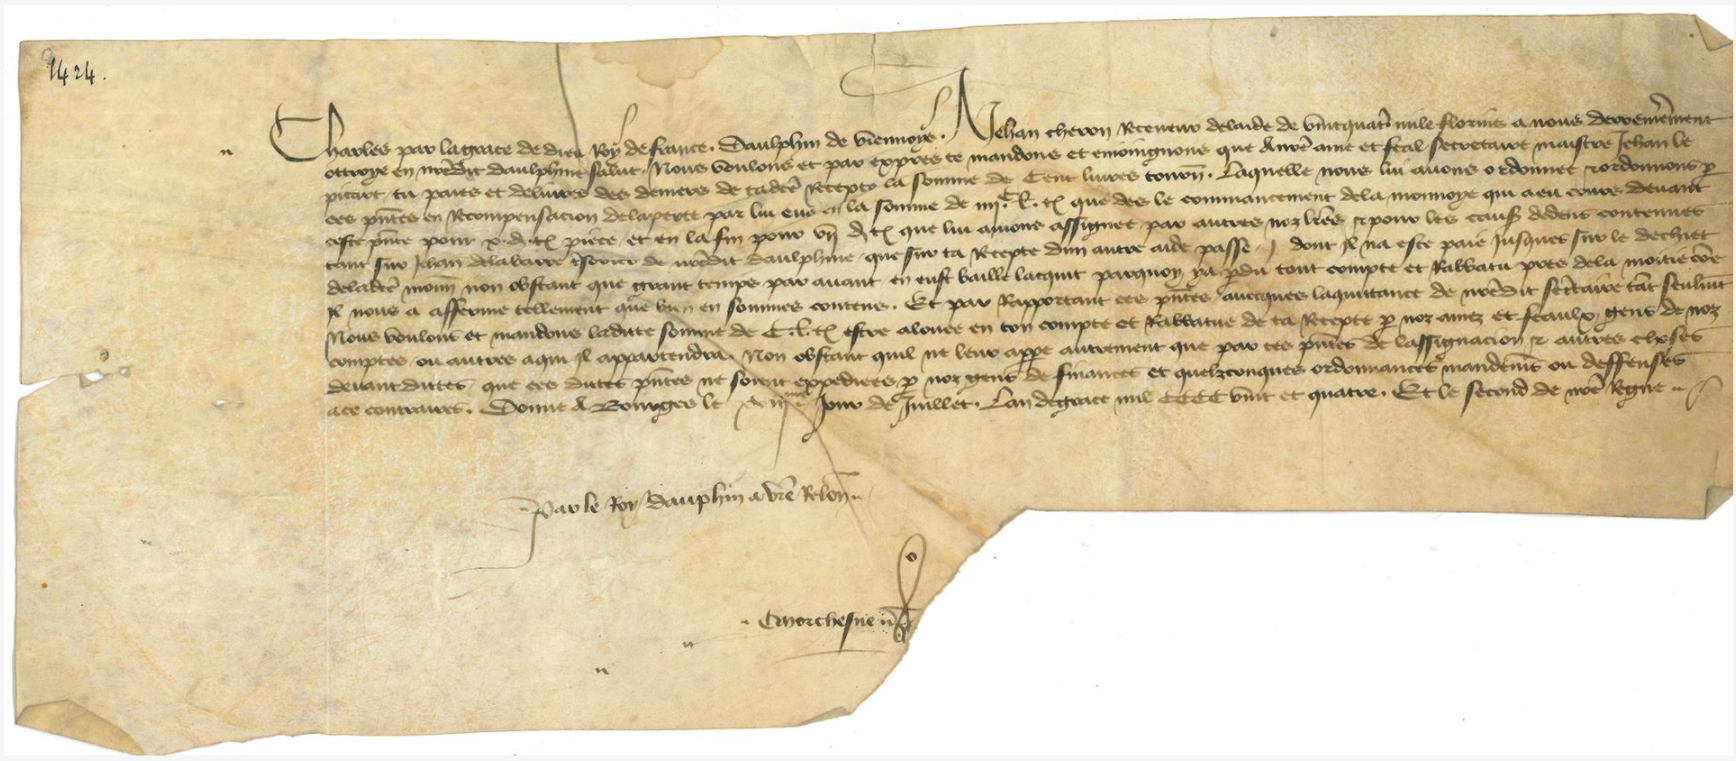 1424.
Charles par la grace de dieu Roy de france. Daulphin de viennoys. A Jehan cheron Receveur de laide de vintquatre mile florins a nous derrenierement
ottroye en nredit daulphine salut. Nous voulons et par expres te mandons et enioingnons que A nre ame et feal secretaire maistre Jehan le
picart tu paies et delivres des deniers de tadcte Recepte la somme de Cent livres tourn. Laquelle nous lui avons ordonnee et ordonnons p
ces pntes en Recompensacion de la perte par lui eue en la somme de iiij C. l. tz que des le commancement de la monnoye qui a eu cours devant
ceste pnte pour x. d. tz piece et en la fin pour vij d. tz que lui avions assignee par autres noz lres et pour les causes dedens contenues
tant sur Jehan de la barre tresorier de nredit daulphine que sur ta Recepte dun autre aide passe dont Il na este paie Jusques sur le dechiet
de ladcte monn non obstant que grant temps par avant en eust baille lacquit parquoy y a perdu tout compte et Rabbatu pres de la moitie coe
Il nous a afferme tellement que bien en sommes contens. Et par Rapportant ces pntes avecques la quittance de nredit secretaire tant seulmt
Nous voulons et mandons ladicte somme de C. l. tz estre alouee en ton compte et Rabbatue de ta Recepte p noz amez et feaulx gens de noz
comptes ou autres a qui Il appartendra. Non obstant quil ne leur appe autrement que par ces pntes de lassignacion et autres choses
devantdictes que ces dictes pntes ne soient expediees p noz gens de finances et quelzconques ordonnances mandemens ou deffenses
a ce contraires. Donne A Bourges le jour de Juillet. Lan de grace mil CCCC vint et quatre. Et le second de nre Regne
Par le Roy daulphin a vre Relon
Morchesne